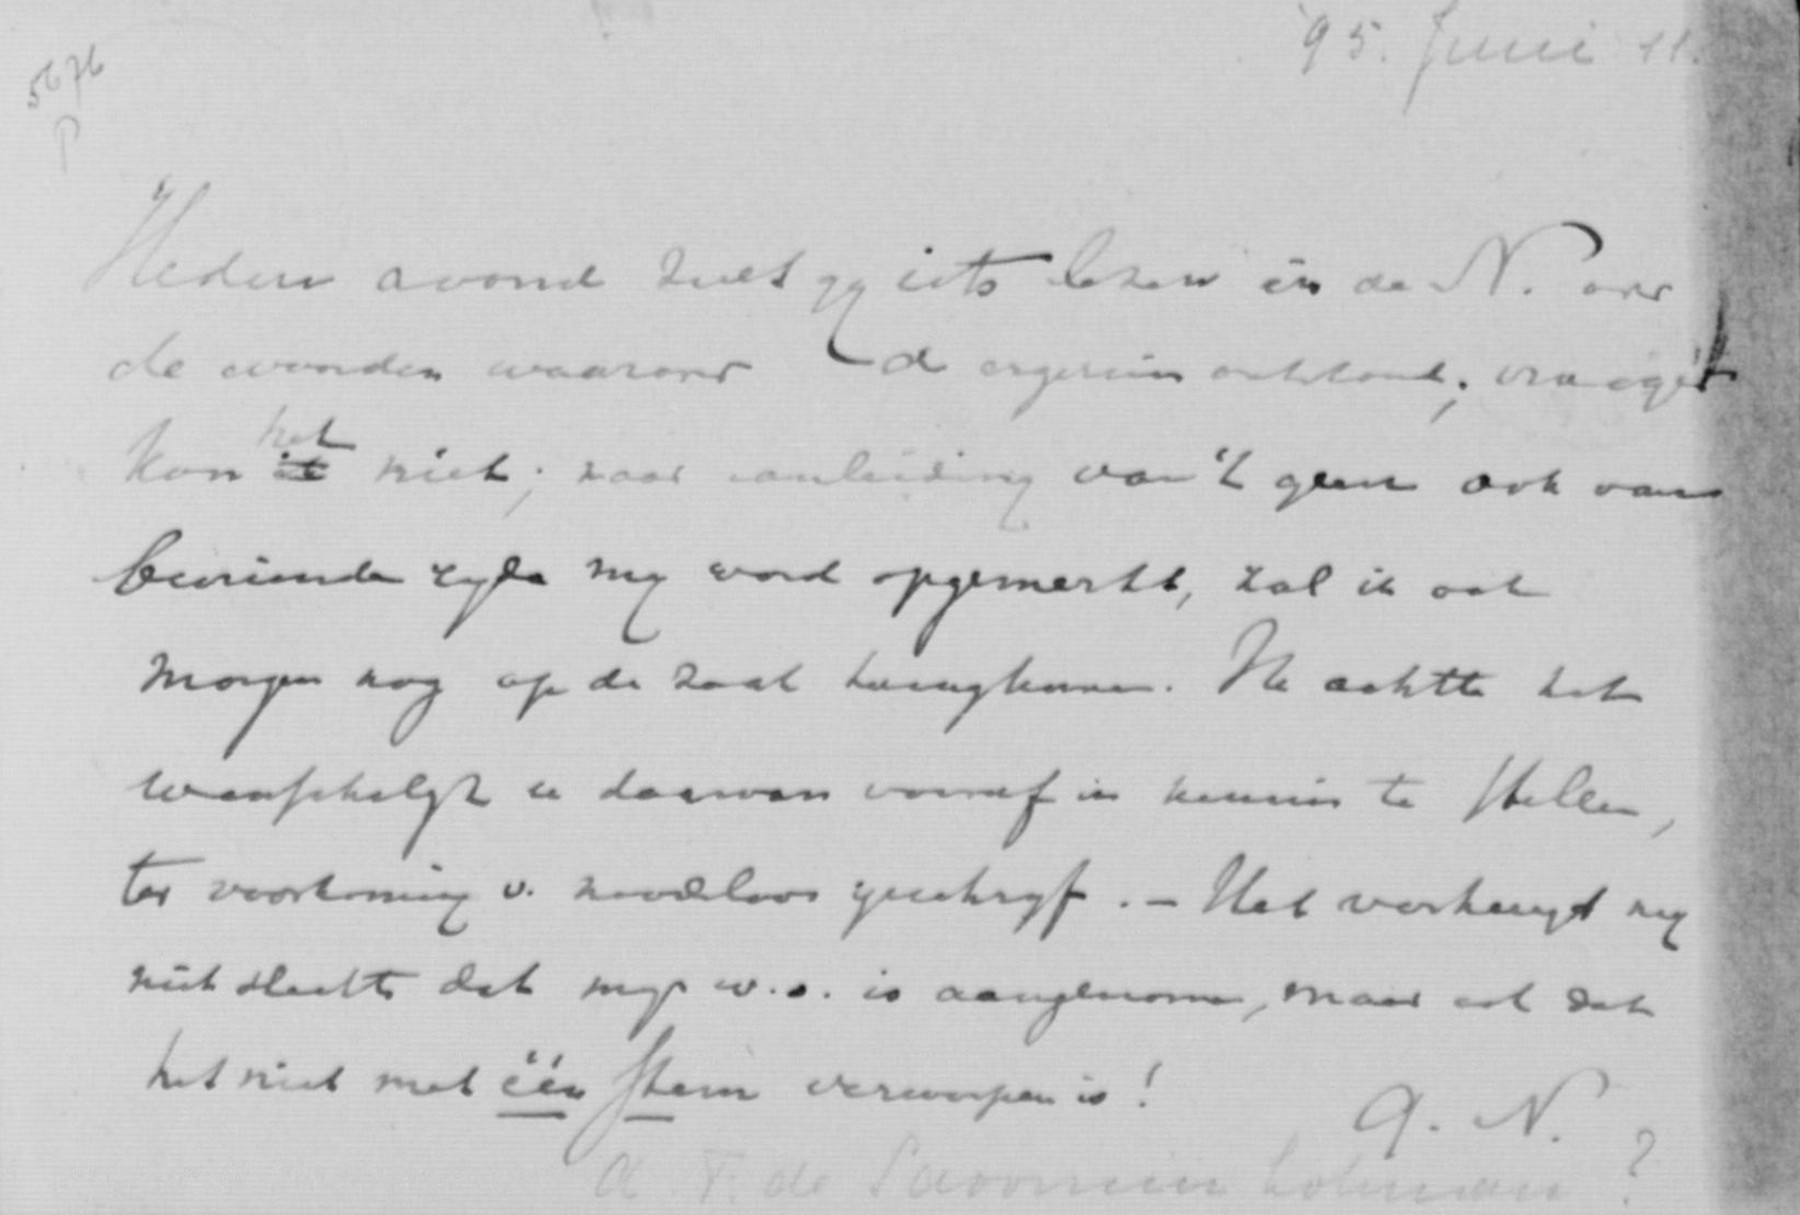 '95. Juni 11.
5676
P
Heden avond zult gij iets lezen in de N. over
de woorden waarover d ergernis ontstond; vroeger
kon het niet; naar aanleiding van 't geen ook van
bevriende zijde mij werd opgemerkt, zal ik ook
morgen nog op de zaak terugkomen. Ik achtte het
wenschelijk u daarvan vooraf in kennis te stellen,
ter voorkoming v. noodeloos geschrijf. – Het verheugt mij
niet slechts dat mijn w.o. is aangenomen, maar ook dat
het niet met één stem verworpen is!
A. N.
A. F. de Savornin Lohman ?